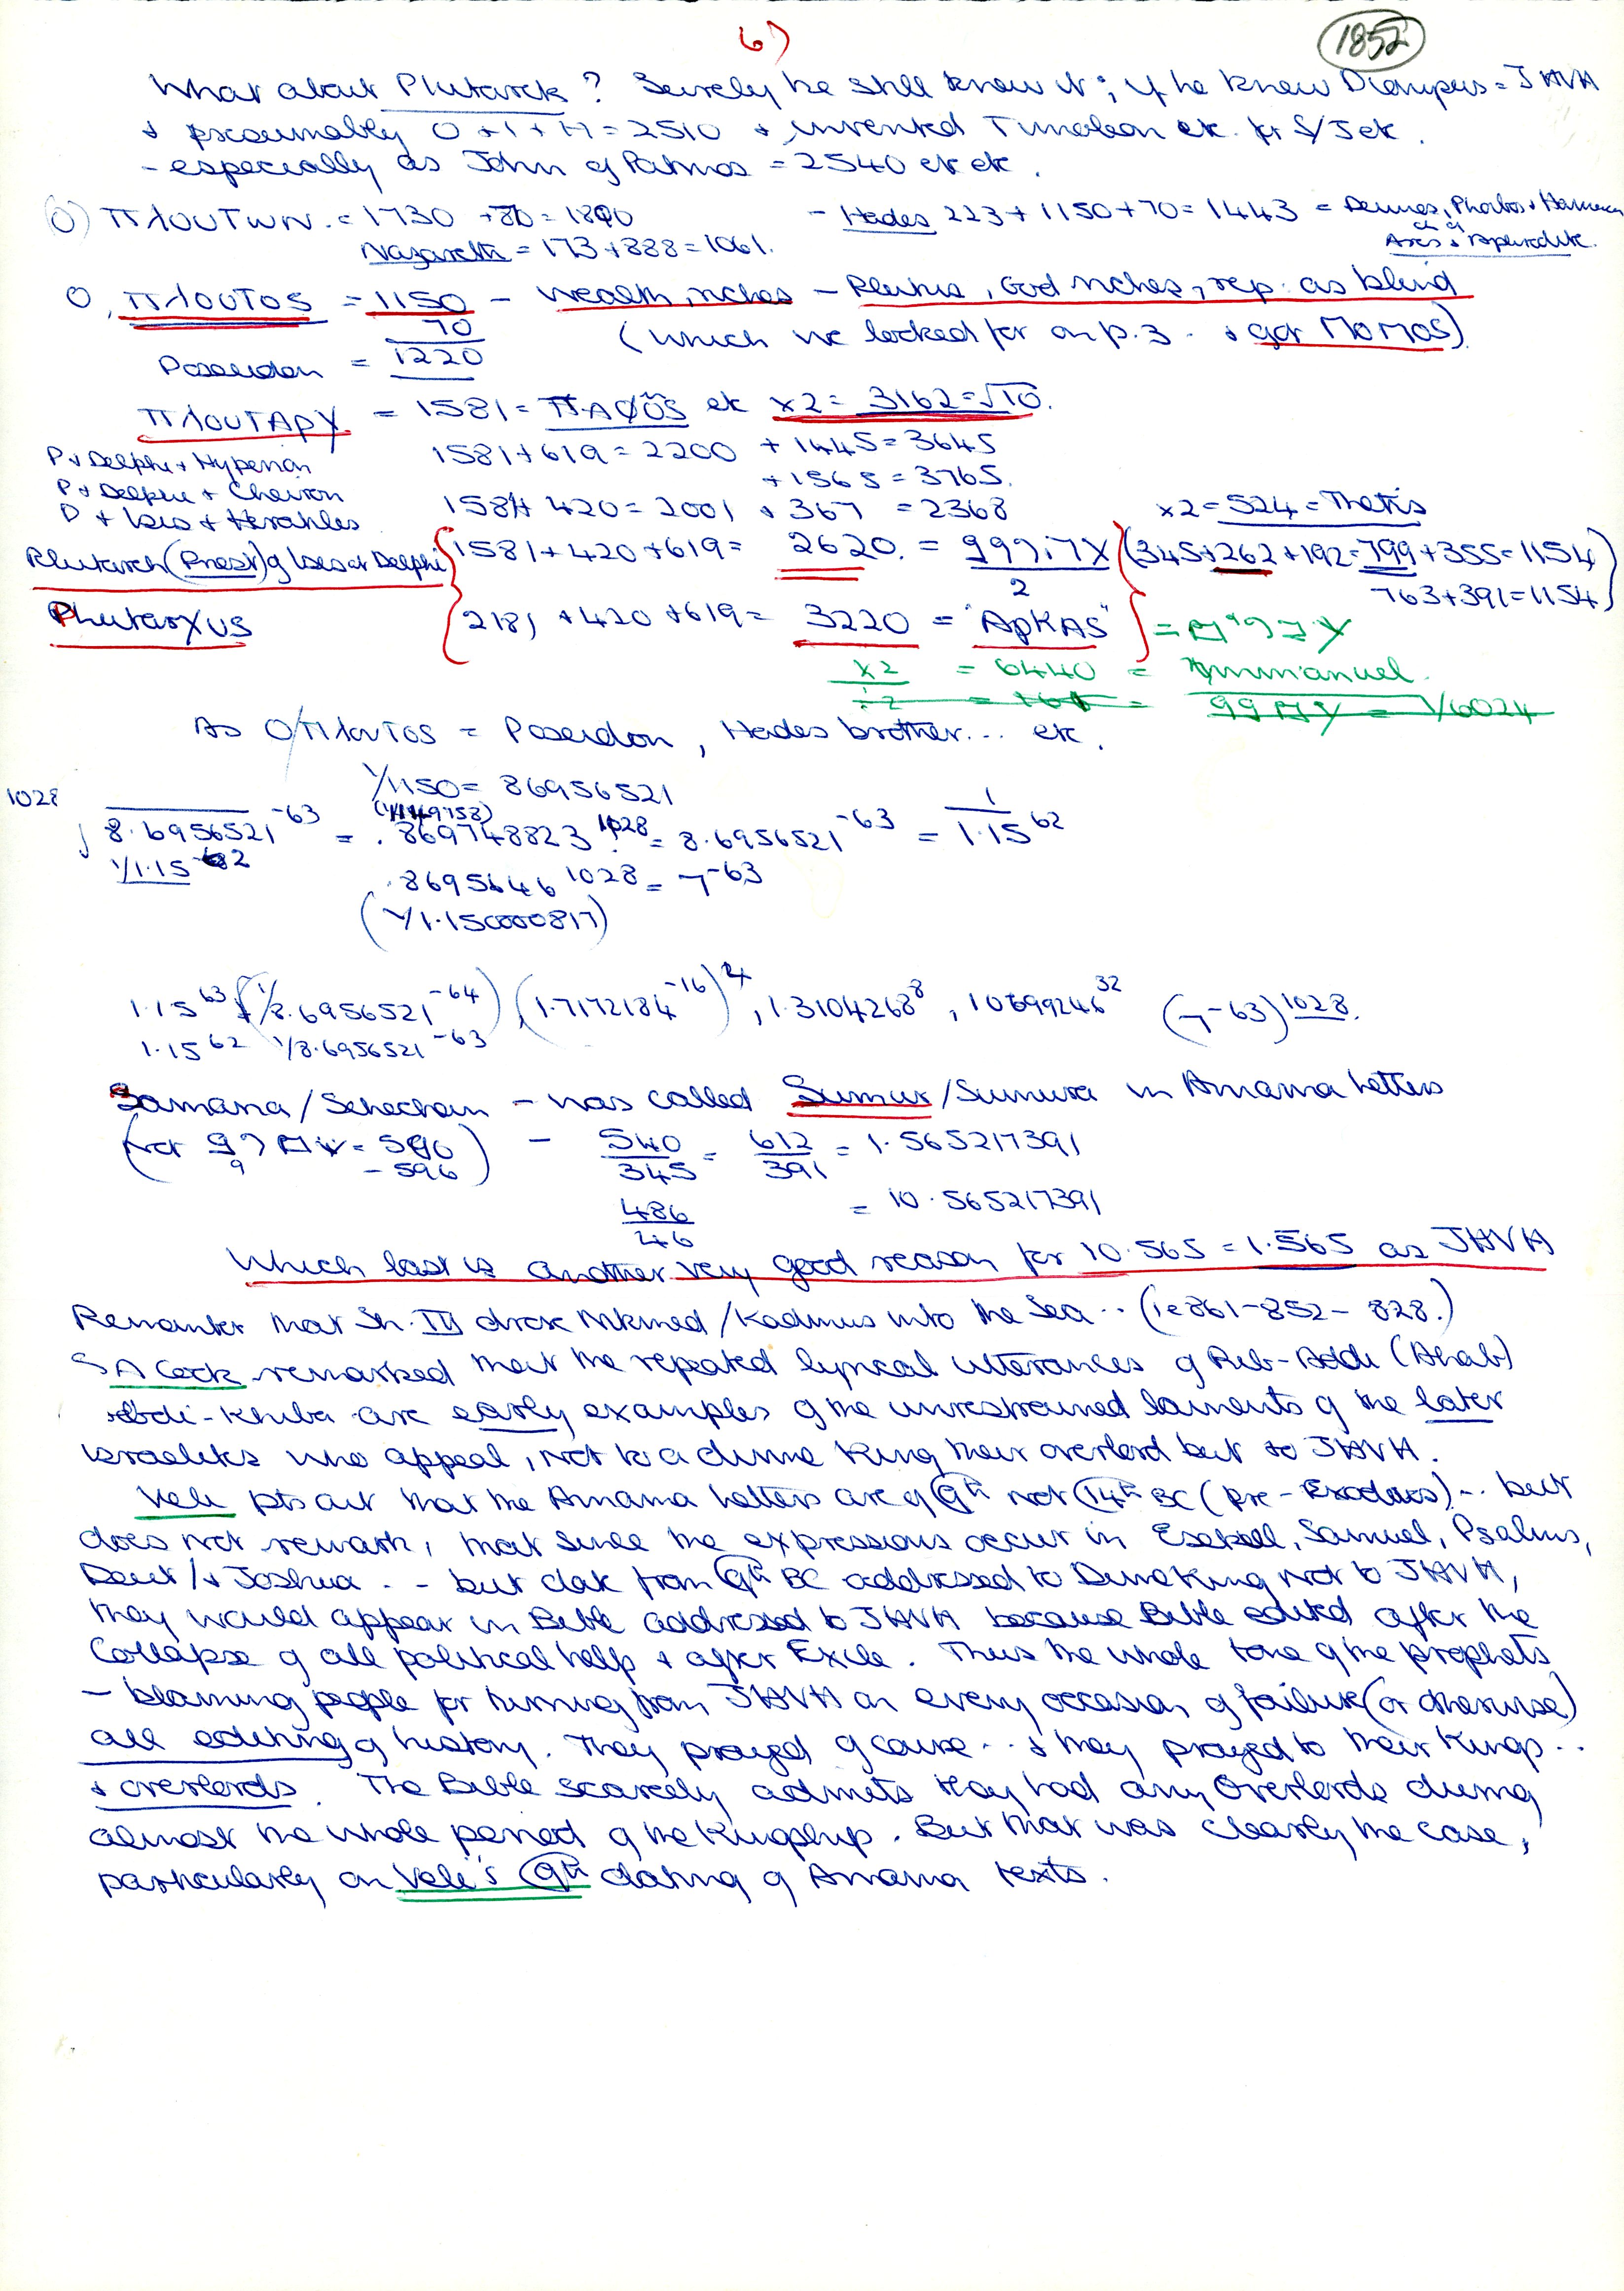 6)
1852
What about Plutarch? Surely he still knew it; if he knew Dionysus = JHVH
+ presumably O + 1 + H = 2510 + invented Timoleon etc. for S/J etc.
- especially as John of Patmos = 2540 etc etc.
(O) ΠλουTWN. = 1730 +80 = 1890 - Hades 223 + 1150 + 70 = 1443 = Deimos, Phobos + Harmonia
Nazareth = 173 + 888 = 1061. Ares + Aphrodite.
O, ΠλουTOS = 1150 - wealth, riches - Plutus, God riches, rep. as blind
70 (which we looked for on p.3 - + got MOMOS).
Poseidon = 1220
ΠλουTARX = 1581 = ΠAΦOS etc x2 = 3162 = √10.
P + Delphi + Hyperion 1581 + 619 = 2200 + 1445 = 3645
P + Delphi + Cheiron + 1565 = 3765.
P + Isis + Herakles 1581 + 420 = 2001 + 367 = 2368 x2 = 524 = Thetis
Plutarch (Priest) of Isis at Delphi 1581 + 420 + 619 = 2620. = (345 + 262 + 192 = 799 + 355 = 1154)
2 763 + 391 = 1154
PlutarXus 2181 + 420 + 619 = 3220 = "ApKAS" =
x2 = 6440 = Immanuel.
As O/ΠλουTOS = Poseidon, Hades brother... etc.
1/1150 = 86956521
1028 (1/1149758)
√8.6956521^-63 = .869748823^1028 = 8.6956521^-63 = 1/1.15^62
1/1.15^62
.8695646^1028 = 7^-63
(1/1.150000817)
1.15^63 (1/8.6956521^-64) (1.7172184^-16)^4, 1.3104268^8, 10699246^32 (7^-63)^1028.
1.15^62 1/8.6956521^-63
Samaria/Schechem - was called Sumur/Sumura in Amarna Letters
(or = 590 - 596) - 540/345 = 612/391 = 1.565217391
486/46 = 10.565217391
Which last is another very good reason for 10.565 = 1.565 as JHVH
Remember that Sh. III drove Nikmed/Kadmus into the Sea .. (ie 861-852-828.)
SA Cook remarked that the repeated lyrical utterances of Rib-Addi (Ahab)
+ Abdi-Khiba are early examples of the unrestrained laments of the later
Israelites who appeal, not to a divine King their overlord but to JHVH.
Veli pts out that the Amarna Letters are of 9th not 14th BC (pre-Exodus) .. but
does not remark, that since the expressions occur in Ezekiel, Samuel, Psalms,
Deut/+ Joshua .. but date from 9th BC addressed to Divine King not to JHVH,
they would appear in Bible addressed to JHVH because Bible edited after the
Collapse of all political help + after Exile. Thus the whole tone of the prophets
- blaming people for turning from JHVH on every occasion of failure (or otherwise)
all editing of history. They prayed of course .. + they prayed to their Kings ..
+ overlords. The Bible scarcely admits they had any Overlords during
almost the whole period of the Kingship. But that was clearly the case,
particularly on Veli's 9th dating of Amarna texts.